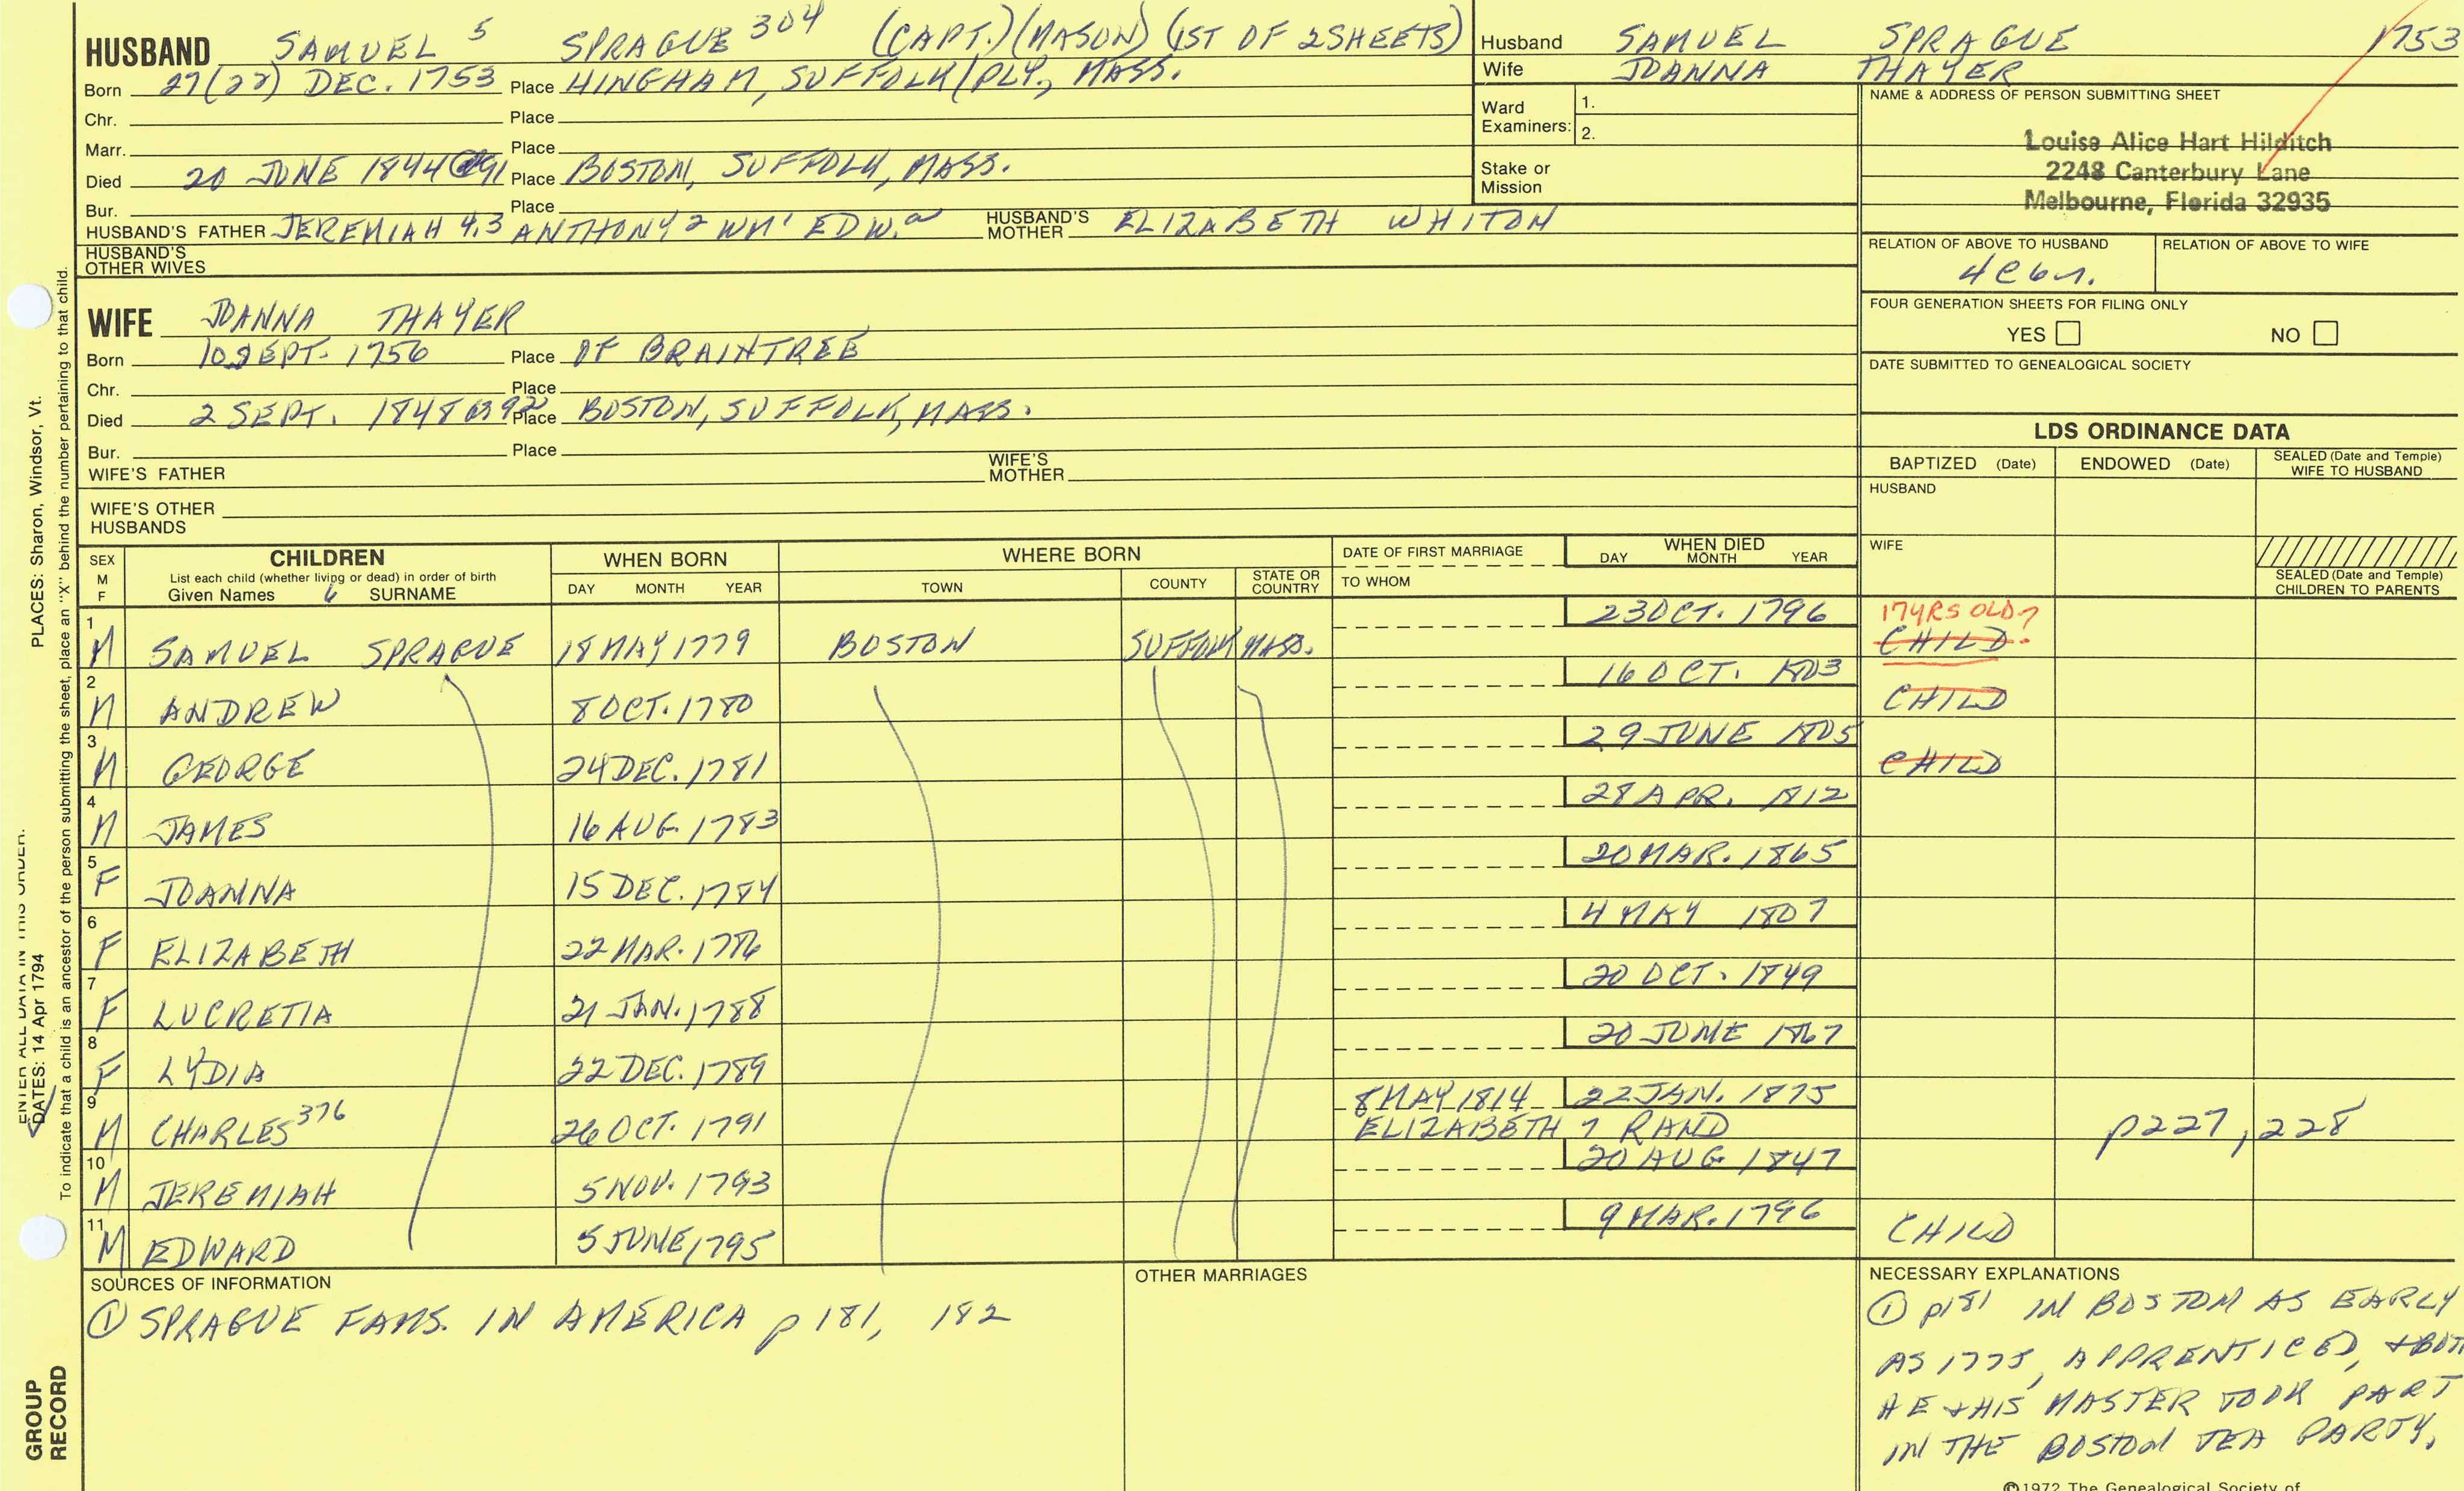 HUSBAND SAMUEL 5 SPRAGUE 304 (CAPT.) (MASON) (1ST OF 2 SHEETS)
Born 27(22) DEC. 1753 Place HINGHAM, SUFFOLK/PLY, MASS.
Chr. Place
Marr. Place
Died 20 JUNE 1844 @91 Place BOSTON, SUFFOLK, MASS.
Bur. Place
HUSBAND'S FATHER JEREMIAH 4,3 ANTHONY 2 WM 1 EDW. HUSBAND'S MOTHER ELIZABETH WHITON
HUSBAND'S OTHER WIVES
Husband SAMUEL SPRAGUE 1753
Wife JOANNA THAYER
Ward Examiners: 1.
2.
Stake or Mission
NAME & ADDRESS OF PERSON SUBMITTING SHEET
Louise Alice Hart Hilditch
2248 Canterbury Lane
Melbourne, Florida 32935
RELATION OF ABOVE TO HUSBAND RELATION OF ABOVE TO WIFE
FOUR GENERATION SHEETS FOR FILING ONLY
YES NO
DATE SUBMITTED TO GENEALOGICAL SOCIETY
WIFE JOANNA THAYER
Born 10 SEPT. 1756 Place OF BRAINTREE
Chr. Place
Died 2 SEPT. 1848 @92 Place BOSTON, SUFFOLK, MASS.
Bur. Place
WIFE'S FATHER WIFE'S MOTHER
WIFE'S OTHER HUSBANDS
LDS ORDINANCE DATA
BAPTIZED (Date) ENDOWED (Date) SEALED (Date and Temple) WIFE TO HUSBAND
HUSBAND
WIFE
SEALED (Date and Temple) CHILDREN TO PARENTS
SEX M F CHILDREN WHEN BORN WHERE BORN DATE OF FIRST MARRIAGE WHEN DIED
List each child (whether living or dead) in order of birth
Given Names 6 SURNAME DAY MONTH YEAR TOWN COUNTY STATE OR COUNTRY TO WHOM DAY MONTH YEAR
1 M SAMUEL SPRAGUE 18 MAY 1779 BOSTON SUFFOLK MASS. 23 OCT. 1796 17 YRS OLD? CHILD
2 M ANDREW 8 OCT. 1780 16 OCT. 1803 CHILD
3 M GEORGE 24 DEC. 1781 29 JUNE 1805 CHILD
4 M JAMES 16 AUG. 1783 28 APR. 1812
5 F JOANNA 15 DEC. 1784 20 MAR. 1865
6 F ELIZABETH 22 MAR. 1786 4 MAY 1807
7 F LUCRETIA 21 JAN. 1788 20 OCT. 1849
8 F LYDIA 22 DEC. 1789 20 JUNE 1867
9 M CHARLES 376 26 OCT. 1791 8 MAY 1814 22 JAN. 1875
ELIZABETH 7 RAND p227, 228
10 M JEREMIAH 5 NOV. 1793 20 AUG 1847
11 M EDWARD 5 JUNE, 1795 9 MAR. 1796 CHILD
SOURCES OF INFORMATION
① SPRAGUE FAMS. IN AMERICA p181, 182
OTHER MARRIAGES
NECESSARY EXPLANATIONS
① p181 IN BOSTON AS EARLY
AS 1775, APPRENTICED, + BOTH
HE + HIS MASTER TOOK PART
IN THE BOSTON TEA PARTY.
©1972 The Genealogical Society of
ENTER ALL DATA IN THIS ORDER:
DATES: 14 Apr 1794
PLACES: Sharon, Windsor, Vt.
To indicate that a child is an ancestor of the person submitting the sheet, place an "X" behind the number pertaining to that child.
GROUP RECORD